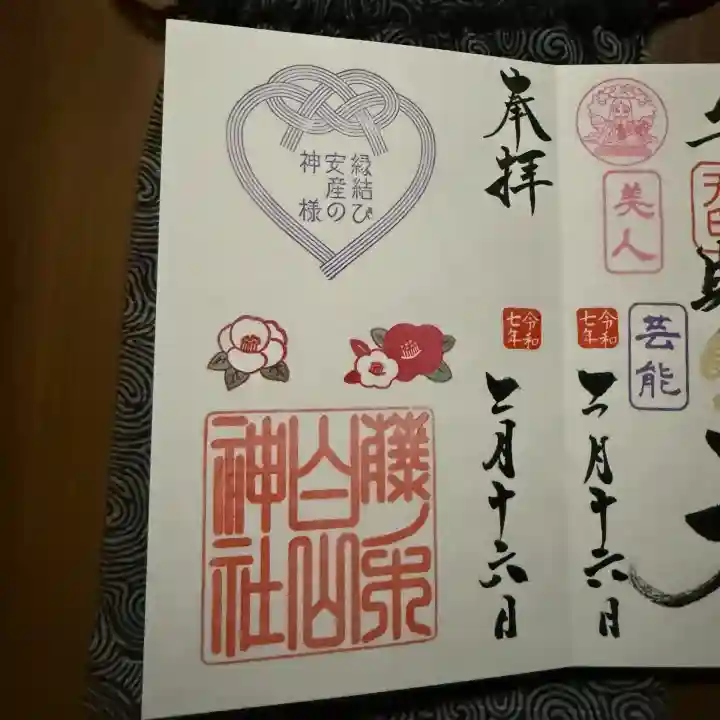 奉拝
縁結び
安産の
神様
令和
七年
二月十六日
藤ノ木
白山
神社
美人
芸能
令和
七年
二月十六日